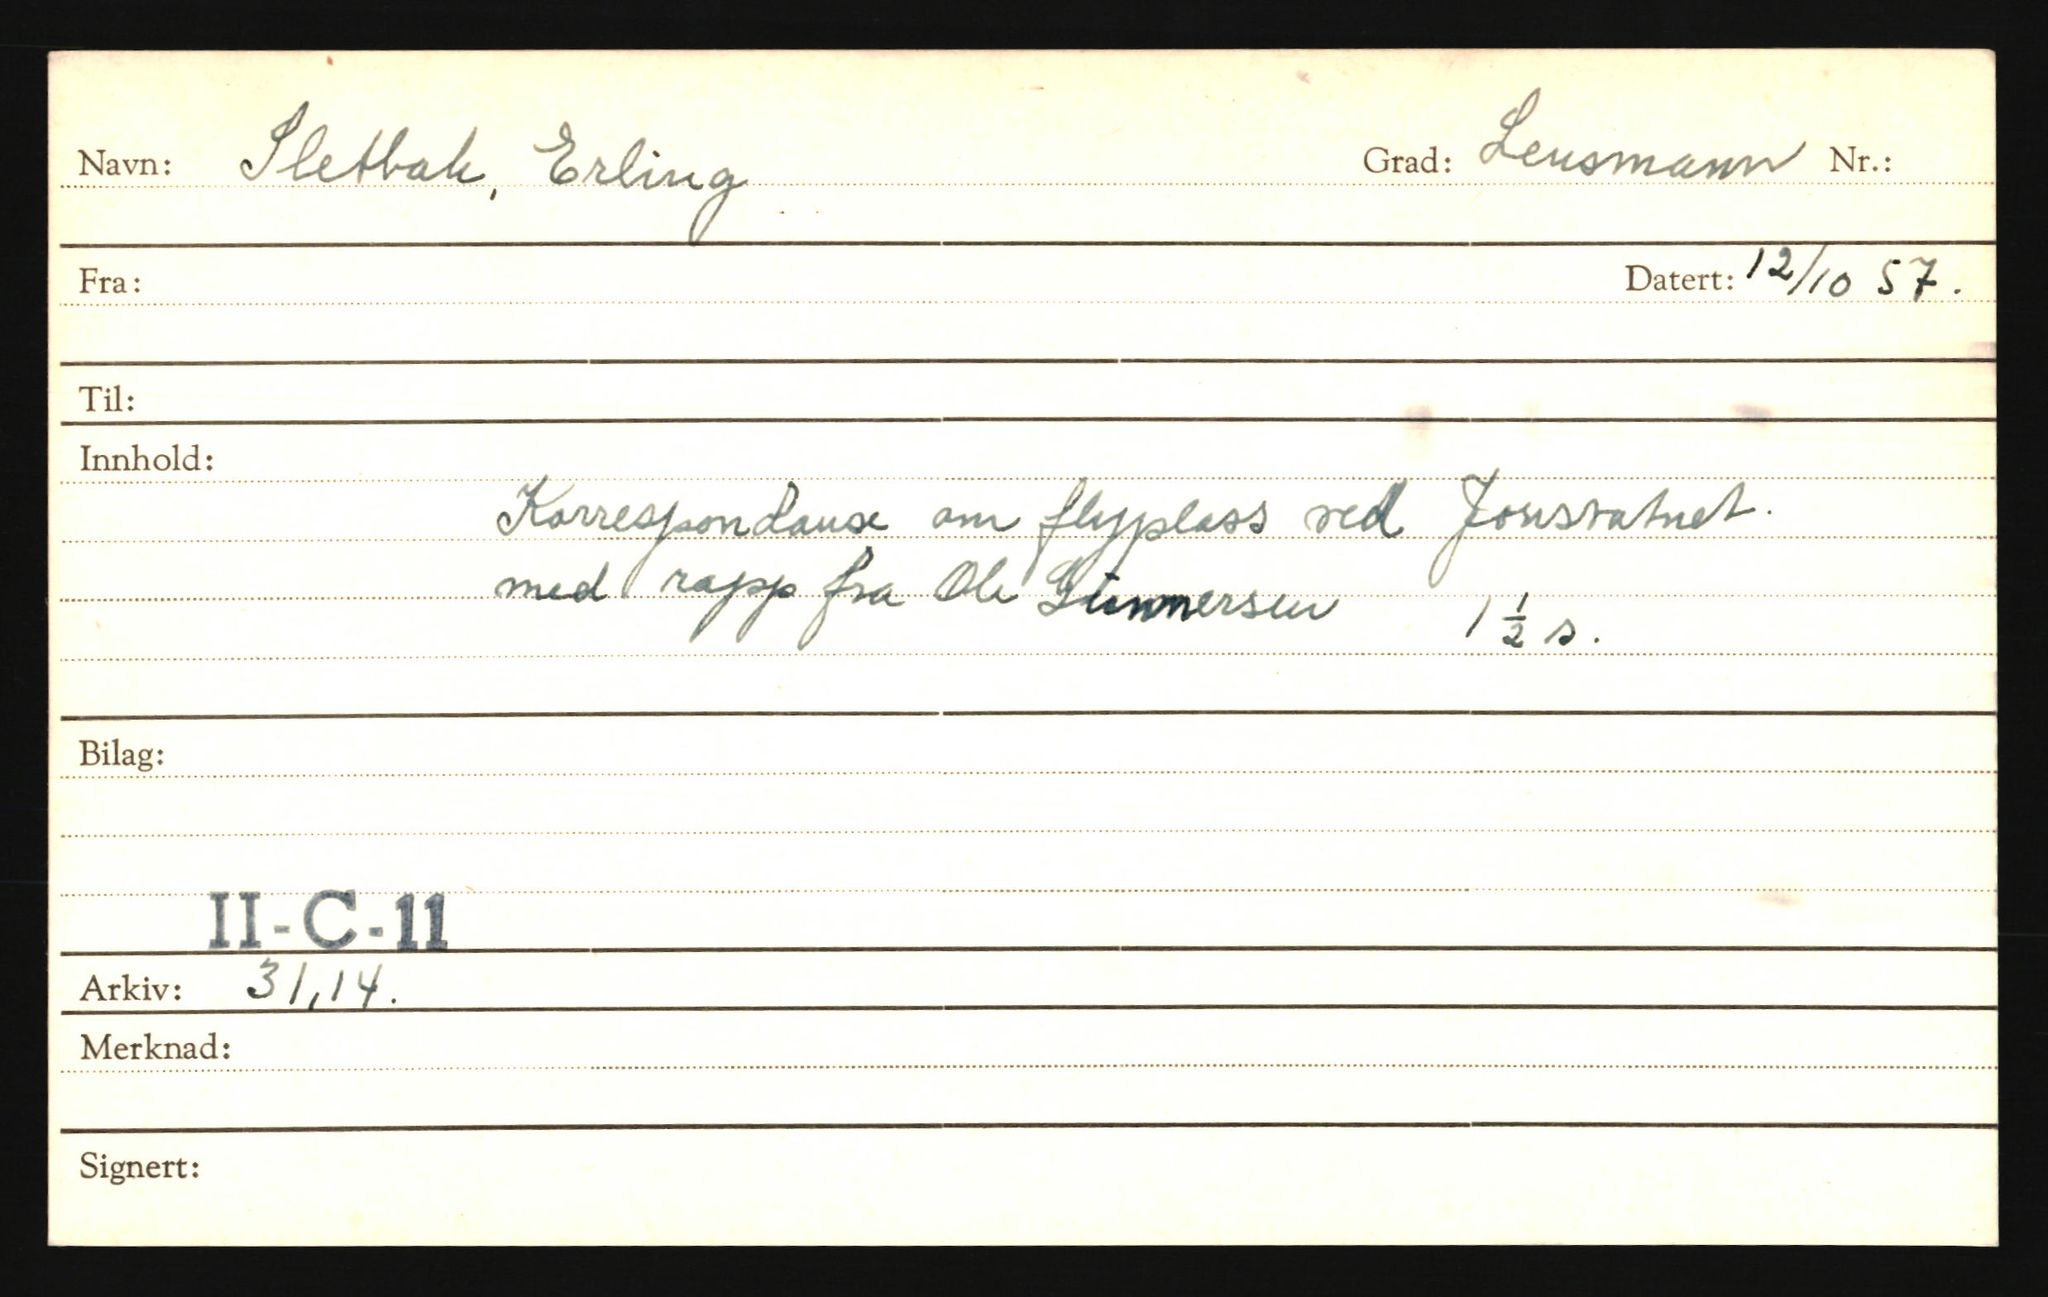 Navn: Sletbak, Erling Grad: Lensmann Nr.:
Fra: Datert: 12/10 57.
Til:
Innhold:
Korrespondanse om flyplass ved Jonsvatnet.
med rapp fra Ole Gunnersen 1 1/2 s.
Bilag:
II-C-11
Arkiv: 31,14.
Merknad:
Signert: